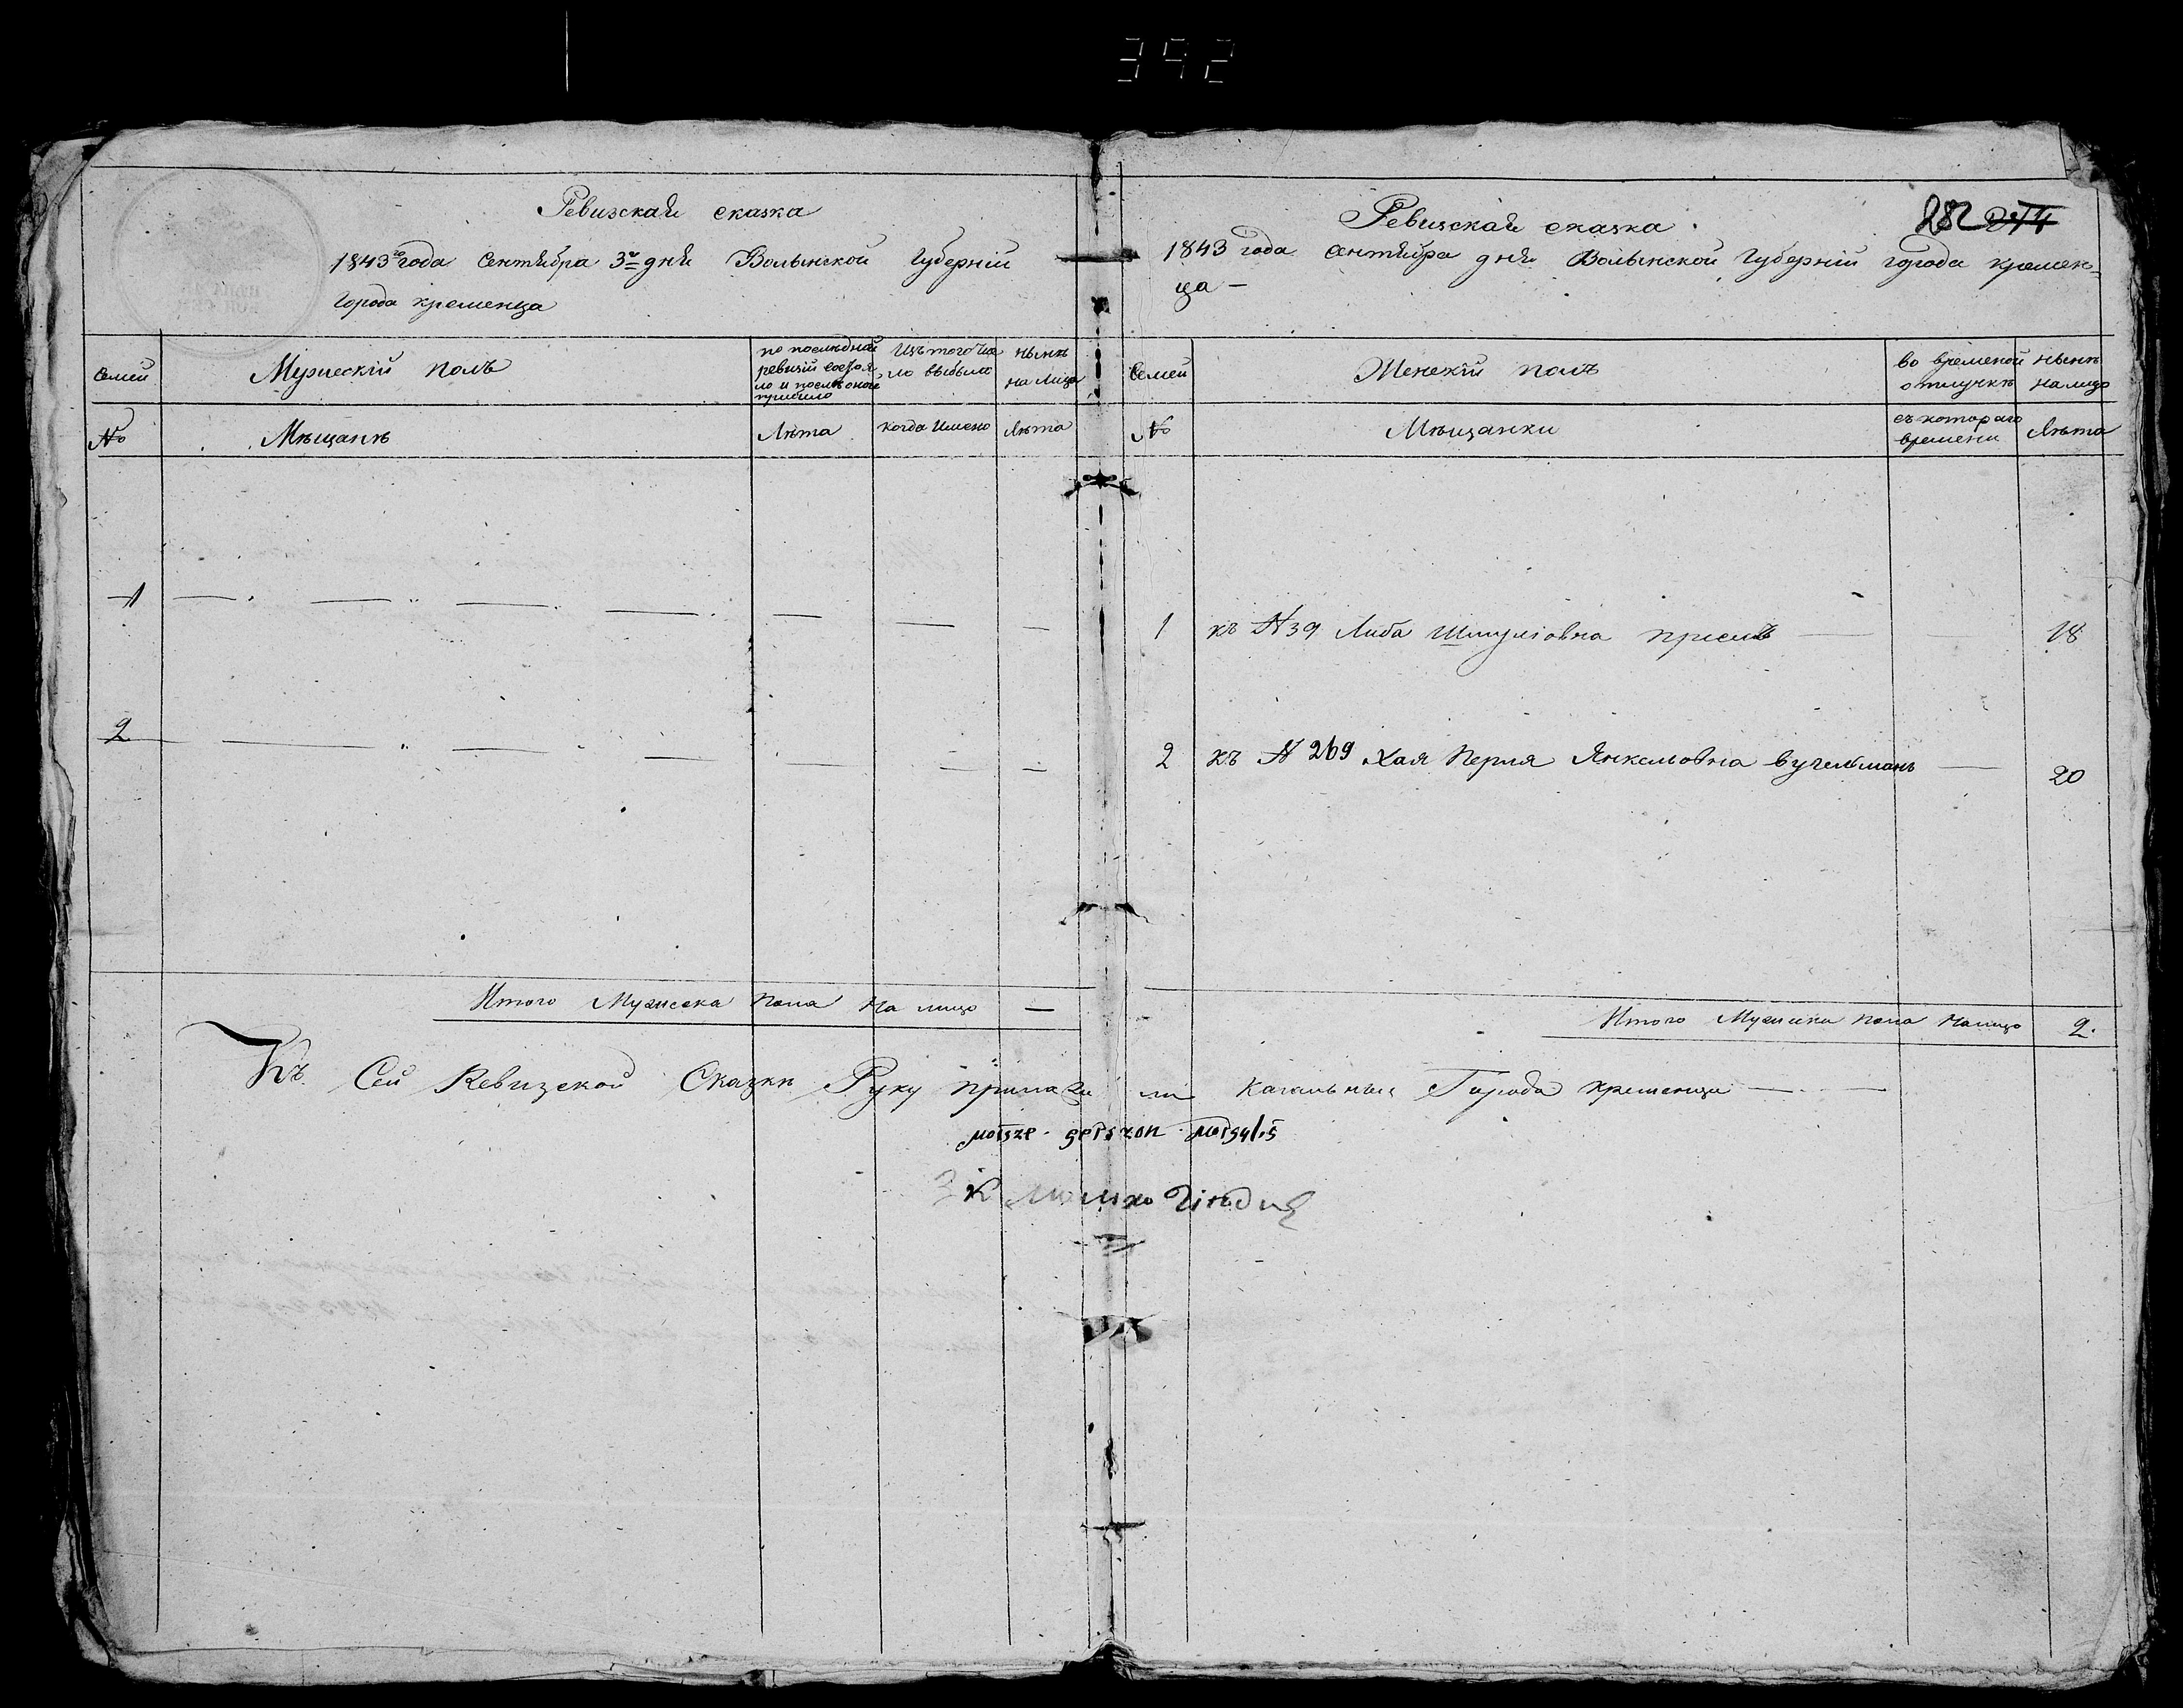 392
Ревизская сказка
1843го года Сентября 3го дня Волынской Губерніи
города кременца
Семей
Мужескій полъ
по последней
ревизій состоя
ло и после оной
прибыло
Изъ того чис
ло выбыло
ныне
на лицо
№
Мѣщанѣ
Лѣта
когда имено
Лѣта
1
2
Итого Мужеска пола На лицо —
Ревизская сказка
282 274
1843 года Сентября дня Волынской Губерніи города кремен-
ца —
Семей
Женскій полъ
во временой
отлучкѣ
нынѣ
налицо
№
Мѣщанки
съ котораго
времени
Лѣта
1 къ № 39 Либа Шмулiовна 18
2 къ № 269 Хая Перля Янкельовна вучельманъ 20
Итого пола налицо 2.
Къ Сей Ревизской Сказки Руку прилажи ли кагальныя Города кременца
moisze gerszon